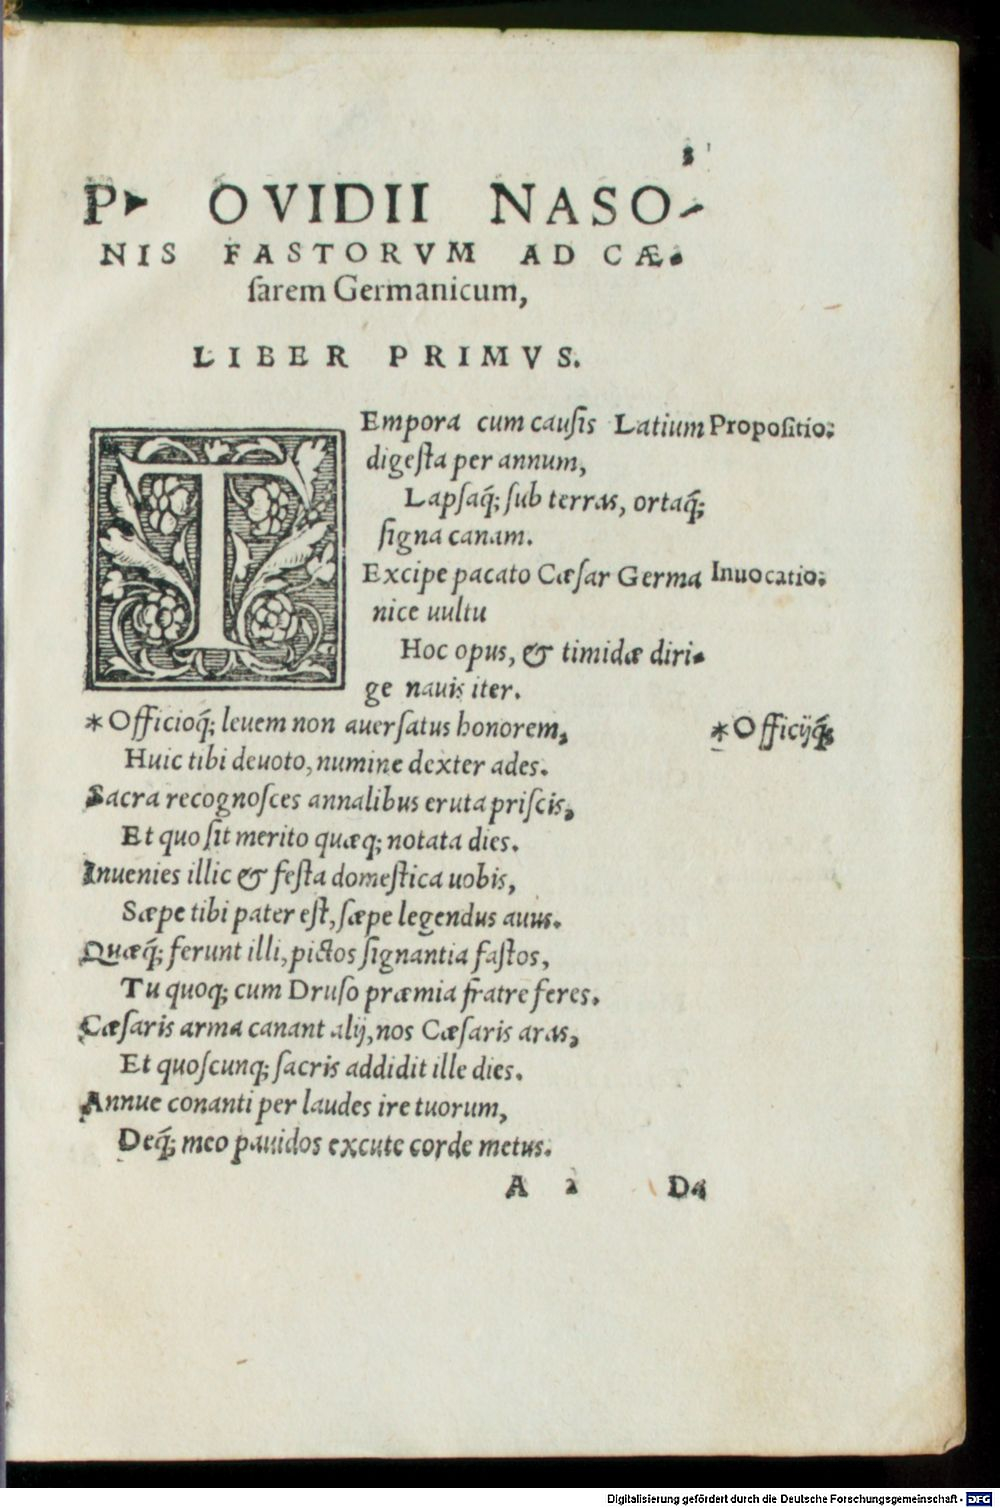 3
P. OVIDII NASO-
NIS FASTORVM AD CÆ-
sarem Germanicum,
LIBER PRIMVS.
TEmpora cum causis Latium Propositio.
digesta per annum,
Lapsaq́; sub terras, ortaq́;
signa canam.
Excipe pacato Cæsar Germa Inuocatio.
nice uultu
Hoc opus, & timidæ diri-
ge nauis iter.
*Officioq́; leuem non auersatus honorem, *Officijq́;
Huic tibi deuoto, numine dexter ades.
Sacra recognosces annalibus eruta priscis,
Et quo sit merito quæq; notata dies.
Inuenies illic & festa domestica uobis,
Sæpe tibi pater est, sæpe legendus auus.
Quæq́; ferunt illi, pictos signantia fastos,
Tu quoq; cum Druso præmia fratre feres.
Cæsaris arma canant alij, nos Cæsaris aras,
Et quoscunq; sacris addidit ille dies.
Annue conanti per laudes ire tuorum,
Deq́; meo pauidos excute corde metus.
A 2 Da
Digitalisierung gefördert durch die Deutsche Forschungsgemeinschaft - DFG